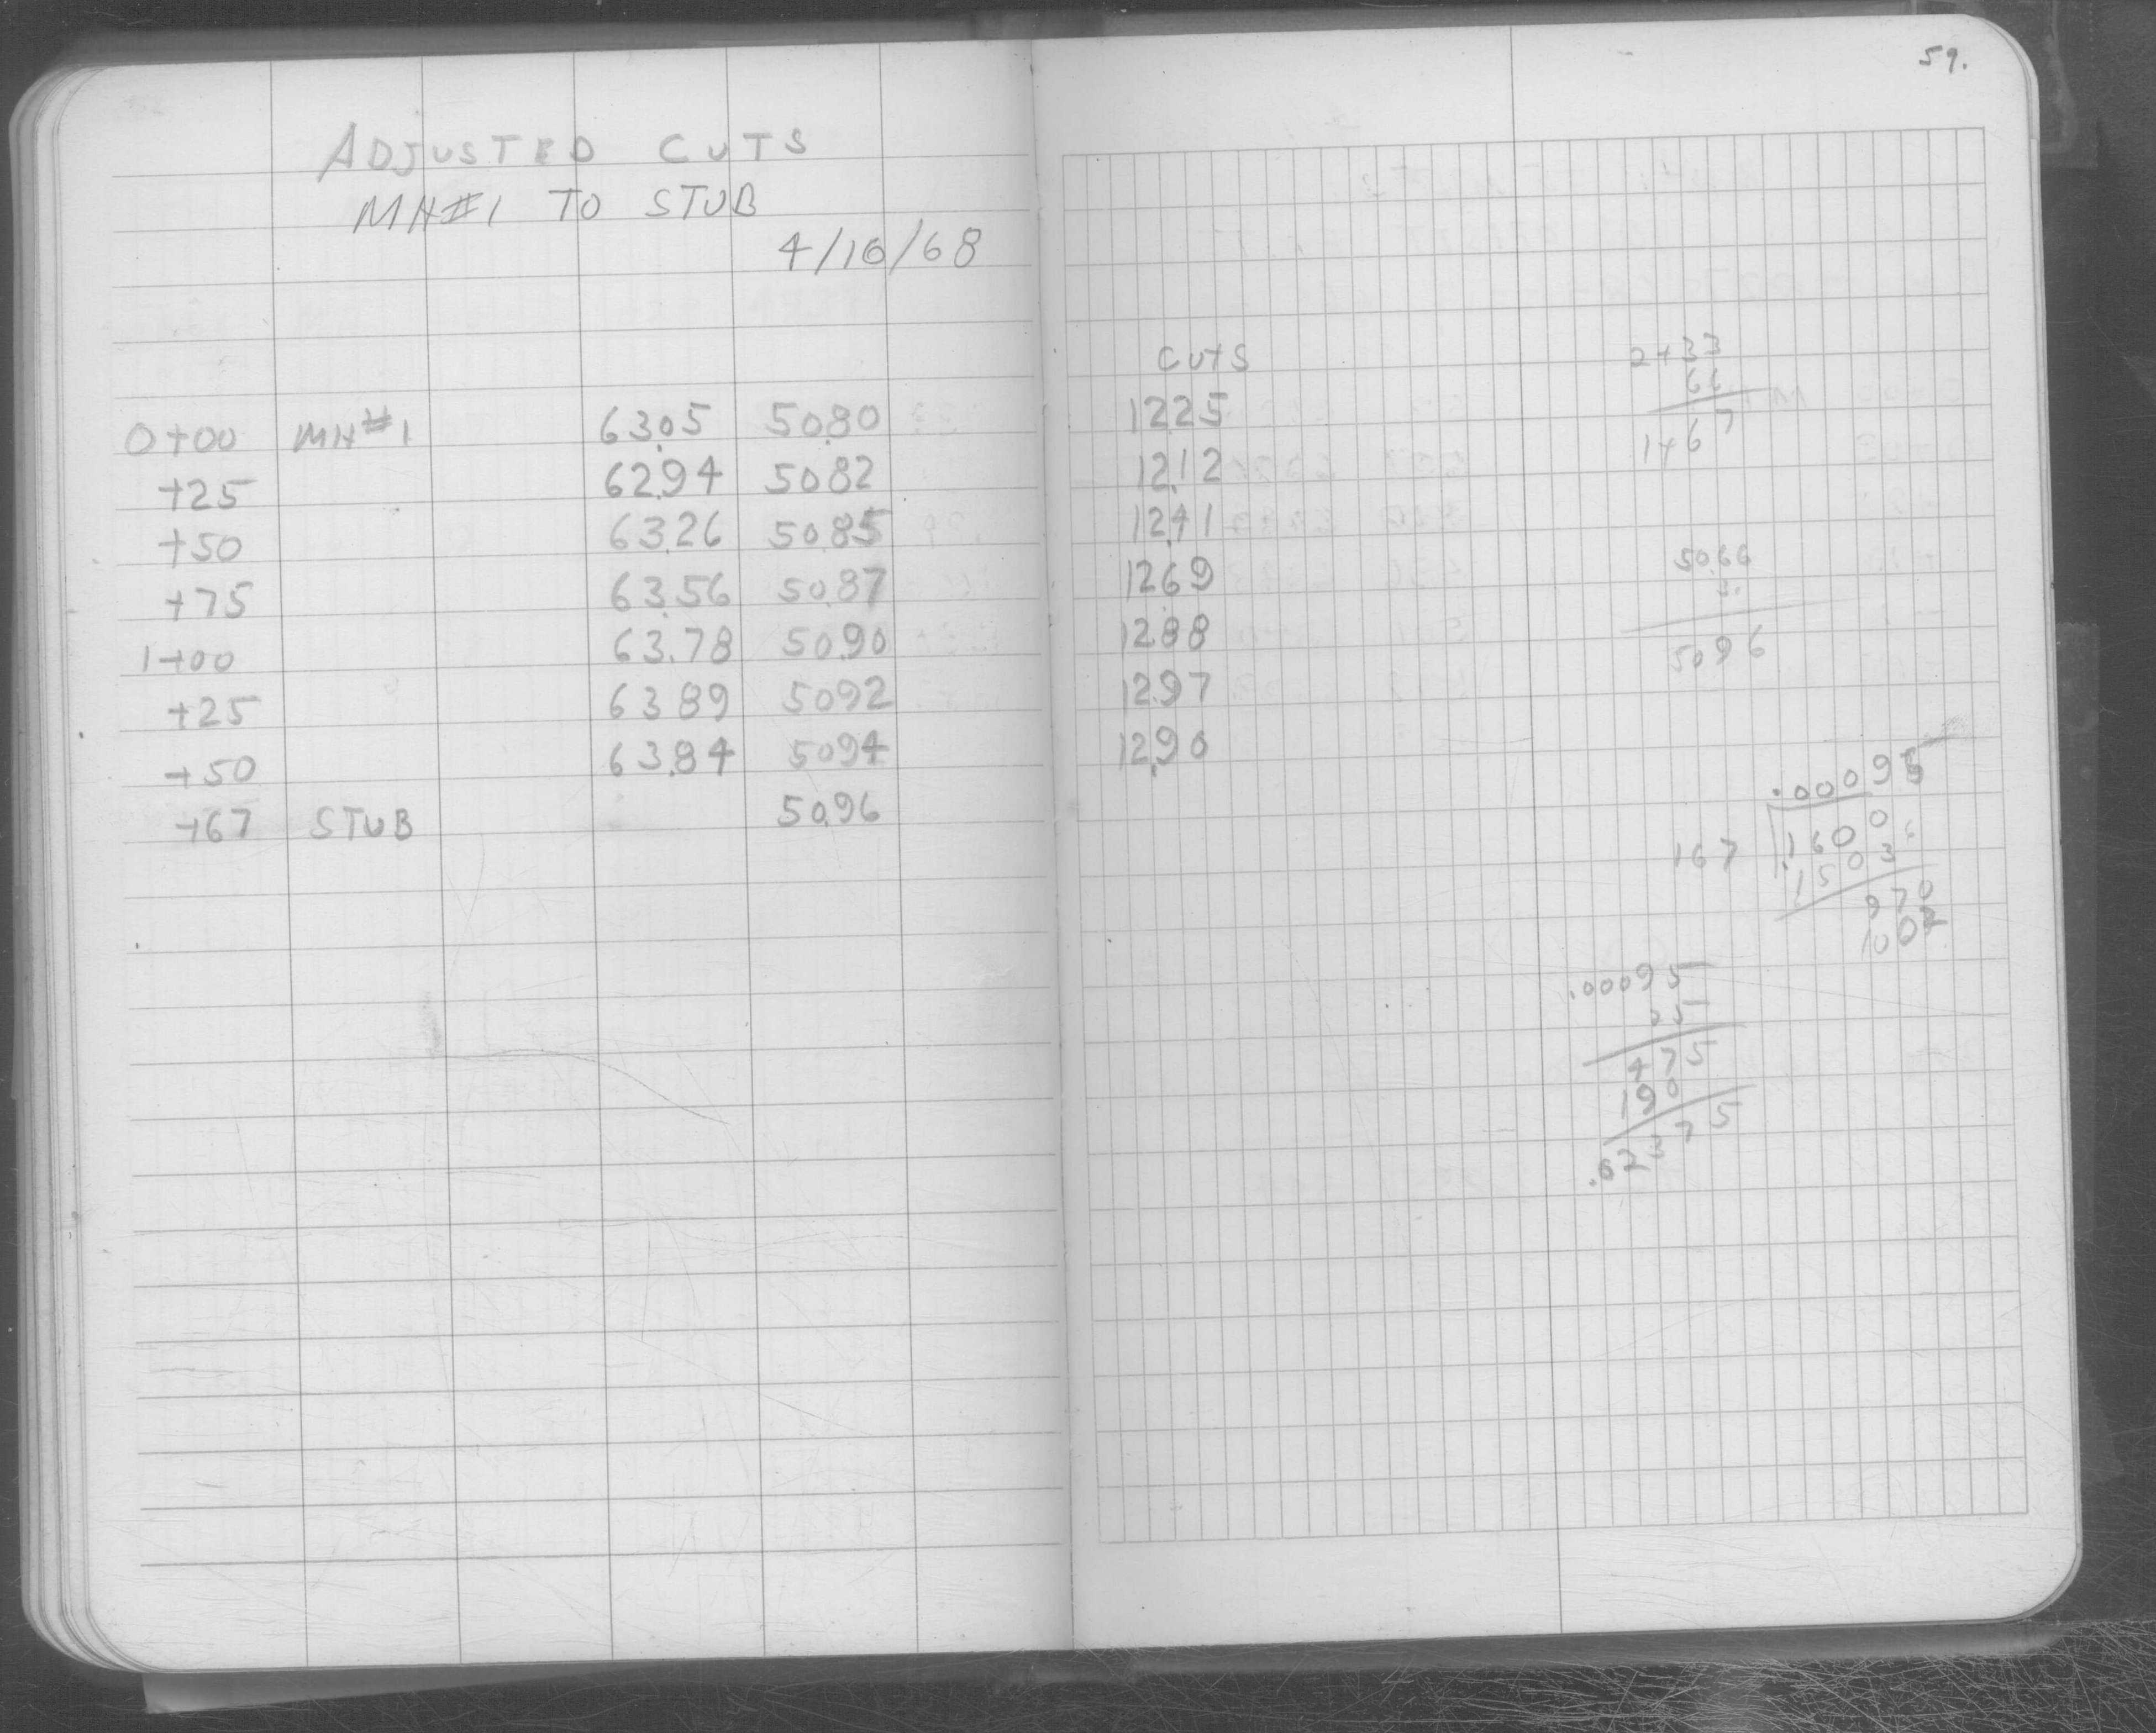 59.
ADJUSTED CUTS
MH#1 TO STUB
4/16/68
CUTS
0+00 MH#1 63.05 50.80 12.25
+25 62.94 50.82 12.12
+50 63.26 50.85 12.41
+75 63.56 50.87 12.69
1+00 63.78 50.90 12.88
+25 63.89 50.92 12.97
+50 63.84 50.94 12.90
+67 STUB 50.96
2+33
66
1+67
50.66
3.
50.96
.00095
167 .1600
.1503
970
1002
.00095
25
475
190
.02375